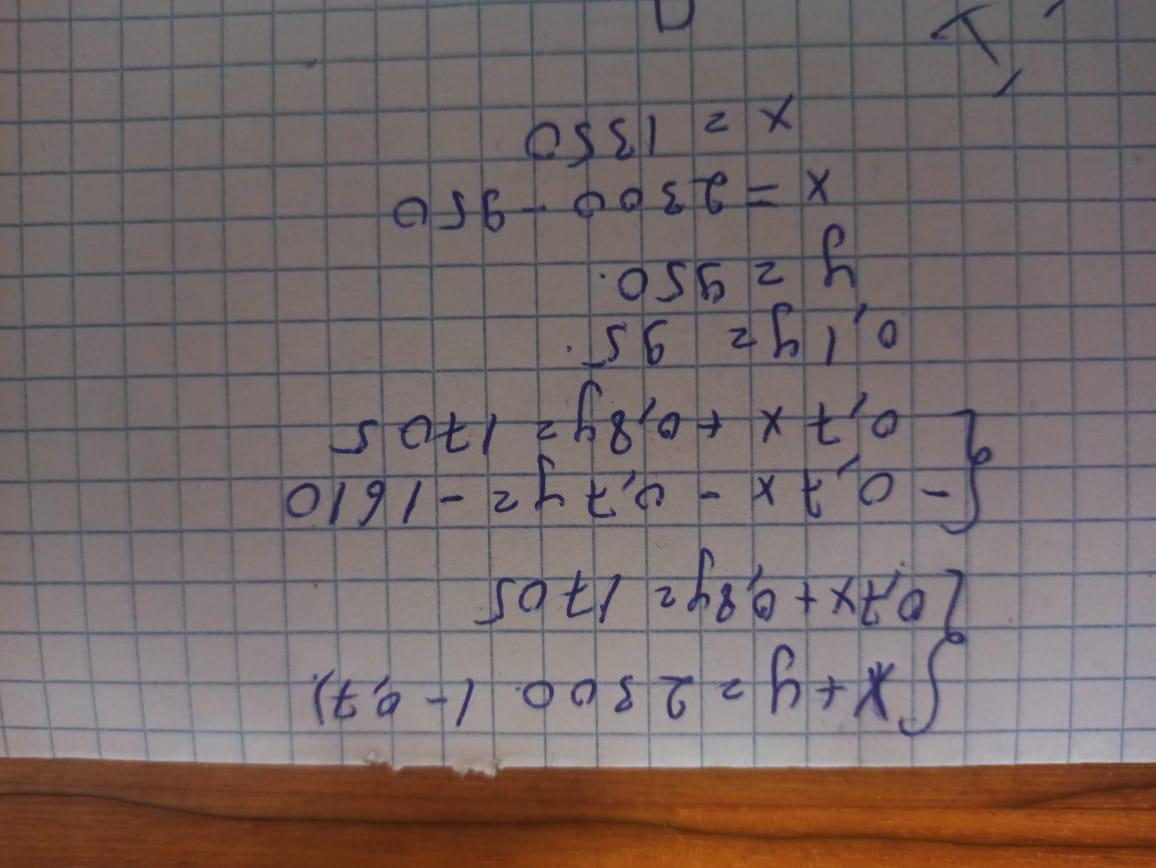 x+y=2300 |·(-0,7)
0,7x+0,8y=1705
-0,7x-0,7y=-1610
0,7x+0,8y=1705
0,1y=95.
y=950.
x=2300-950
x=1350